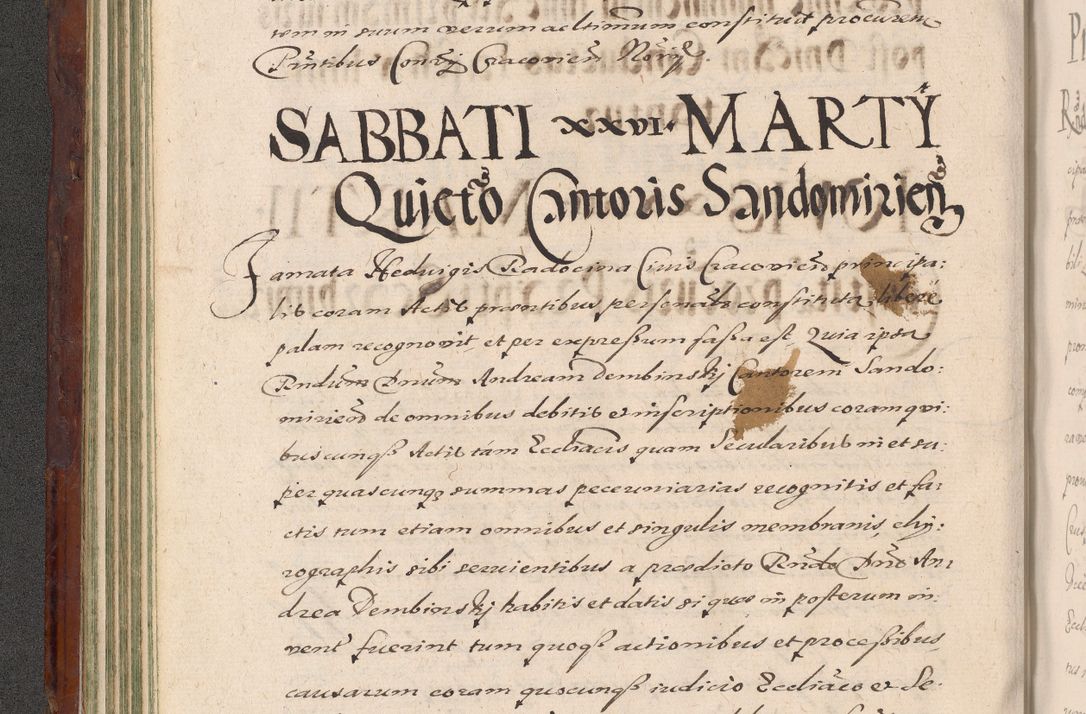 tem in suum verum ac ltimum constituit procurem
Pntibus Consij Cracovien Norijs.
SABBATI xxvi. MARTŸ
Quieto Cantoris Sandomirien
Famata Hedvigis Radocina Civis Cracovien principa:
lis coram Actis prœntibus personalr constituta, libere
palam recognovit, et per expressum fassa est, Quia ipsa
Rndum Dnum Andream Dembinskij Cantorem Sando:
mirien de omnibus debitis et inscriptionibus coram qvi:
buscunqȝ Actis tam Eccliacis quam Secularibus in et su:
per quascunqȝ summas pecuniarias recognitis et fa:
ctis tum etiam omnibus et singulis membranis, chÿ:
rographis sibi servientibus a prœdicto Rndo Dno An:
drea Dembinskij habitis et datis si quœ in posterum in:
vent fuerint tum quoqȝ actionibus et processibus
causarum coram quocunqȝ iudicio Eccliaco et Se: